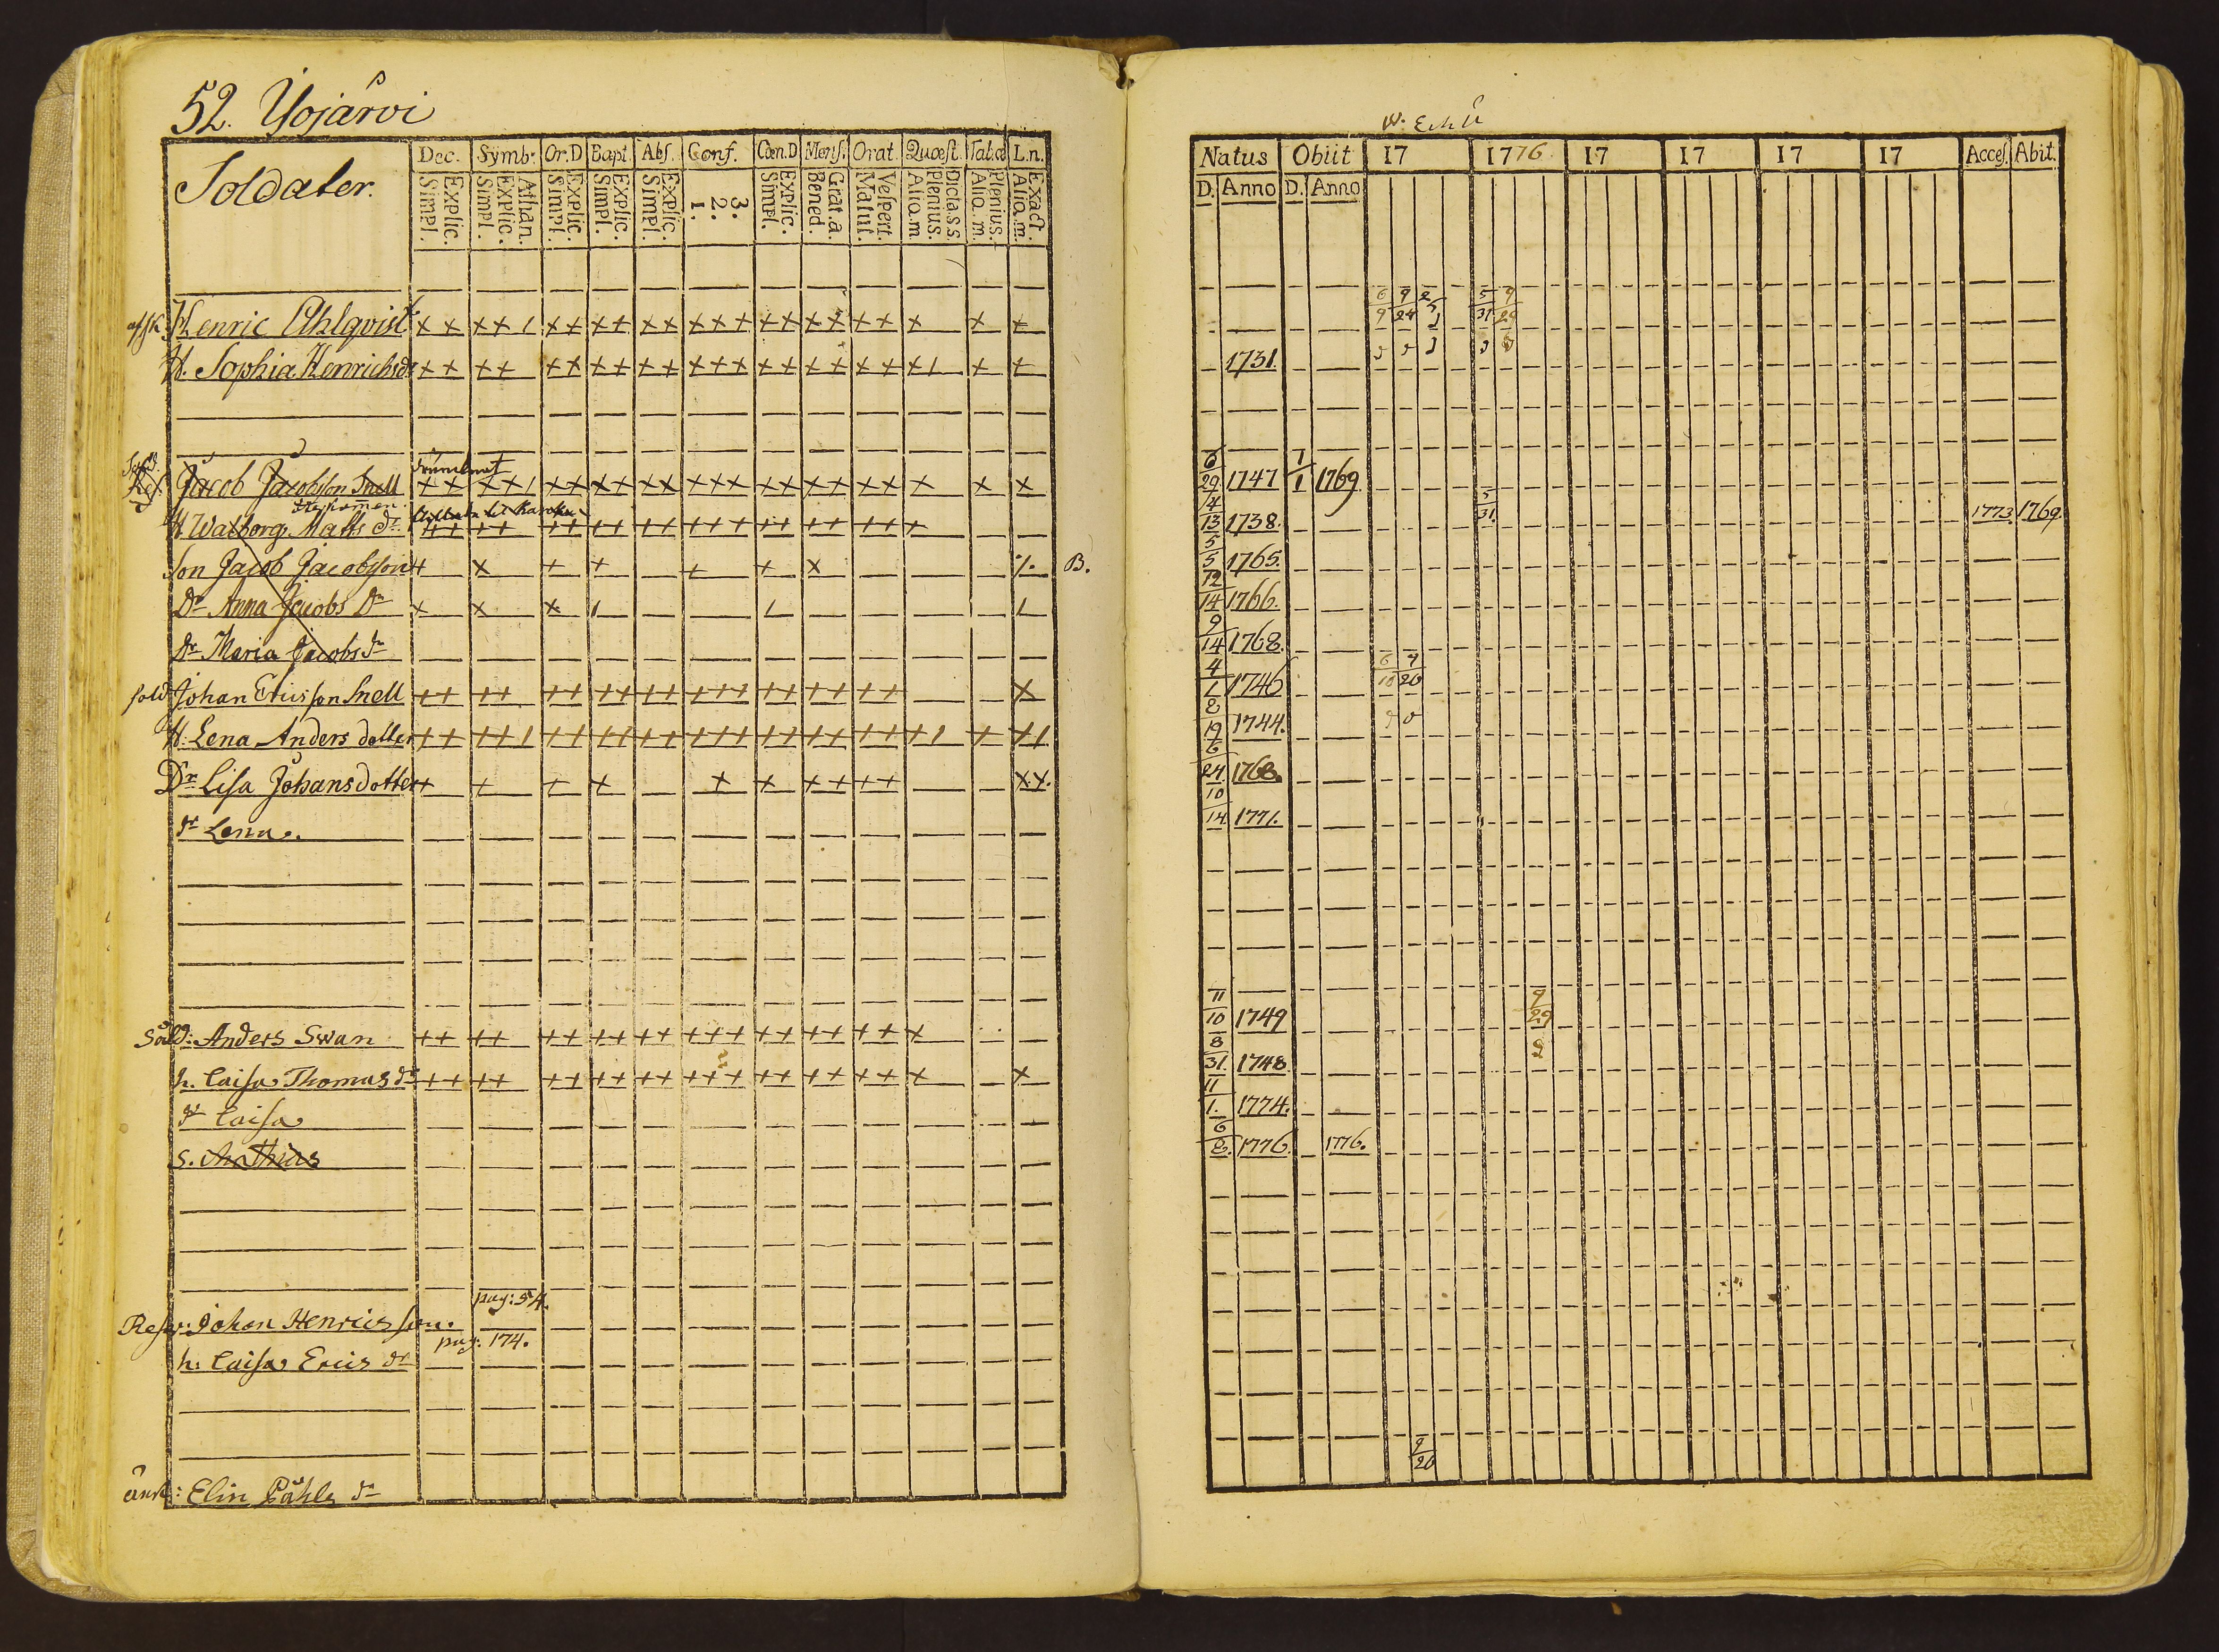 52. Yojärvi
Soldater.
Dec. Symb. Or.D Bapt. Abs. Conf. Cœn.D Mens. Orat. Quæst. Tab.œ L.n.
Simpl. Explic. Simpl. Explic. Athan. Simpl. Explic. Simpl. Explic. Simpl. Explic. 1. 2. 3. Simpl. Explic. Bened. Grat.a. Matut. Vespert. Aliq.m Plenius. Dicta.s.s. Aliq.m. Plenius. Aliq.m. Exact.
afsk Henric Ahlqvist
H. Sophia Henrichsdr
Jacob Jacobsson Snell drunknat
H. Walborg Matts dr
Son Jacob Jacobsson B.
Dr Anna Jacobs Dr
Dr Maria Jacobs dr
sold Johan Ericsson Snell
H. Lena Anders dotter
Dr Lisa Johansdotter
dr Lena.
Sold: Anders Swan
h. Caisa Thomas dr
dr Caisa
s. Mathias
pag: 54.
Reserv: Johan Henricsson.
pag: 174.
h. Caisa Erics dr
Elin Påhls dr
Natus Obiit 17 1776 17 17 17 17 Acces. Abit.
D. Anno D. Anno
6/9 9/24 5/31 9/29
1731.
6/29 1747 1/1 1769
14/13 1738. 5/31 1773 1769.
5/5 1765.
12/14 1766.
9/14 1768.
4/1 1746 6/10 9/20
8/19 1744.
6/24 1768.
10/14 1771.
11/10 1749 9/29
8/31 1748
11/1. 1774.
6/8. 1776. 1776.
9/20